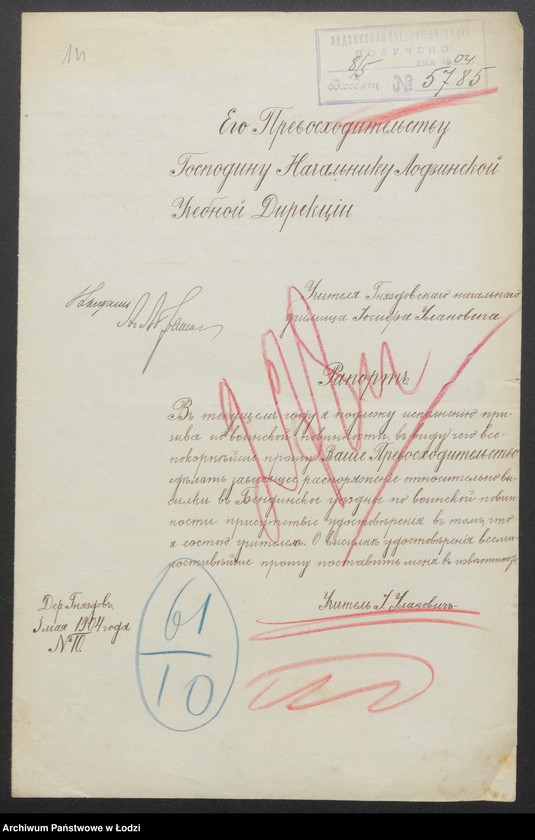 ПОЛУЧЕНО
8/5 04
Входящ. № 5785
Его Превосходительству
Господину Начальнику Лодзинской
Учебной Дирекціи
Учителя Гназдовскаго начальнаго
училища Іосифа Улановича
Рапортъ
Въ текущемъ году я подлежу исполненію при-
зыва по воинской повинности, въ виду чего все-
покорнѣйше прошу Ваше Превосходительство
сдѣлать зависящее распоряженіе относительно вы-
сылки въ Бендинское уѣздное по воинской повин-
ности присутствіе удостовѣренія въ томъ, что
я состою учителемъ. О высылкѣ удостовѣренія всеми-
лостивѣйше прошу поставить меня въ извѣстность.
Учитель І. Улановичъ
Дер. Гназдовъ
3 мая 1904 года
№ 10.
61
10
Archiwum Państwowe w Łodzi